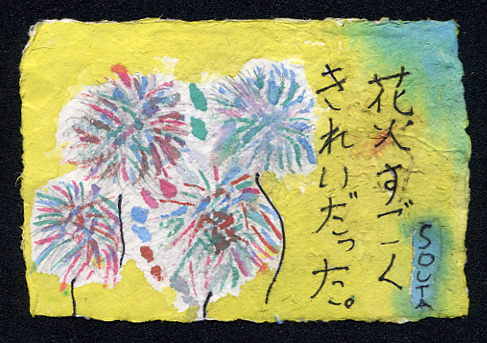 花火すごーく
きれいだった。
SOUTA